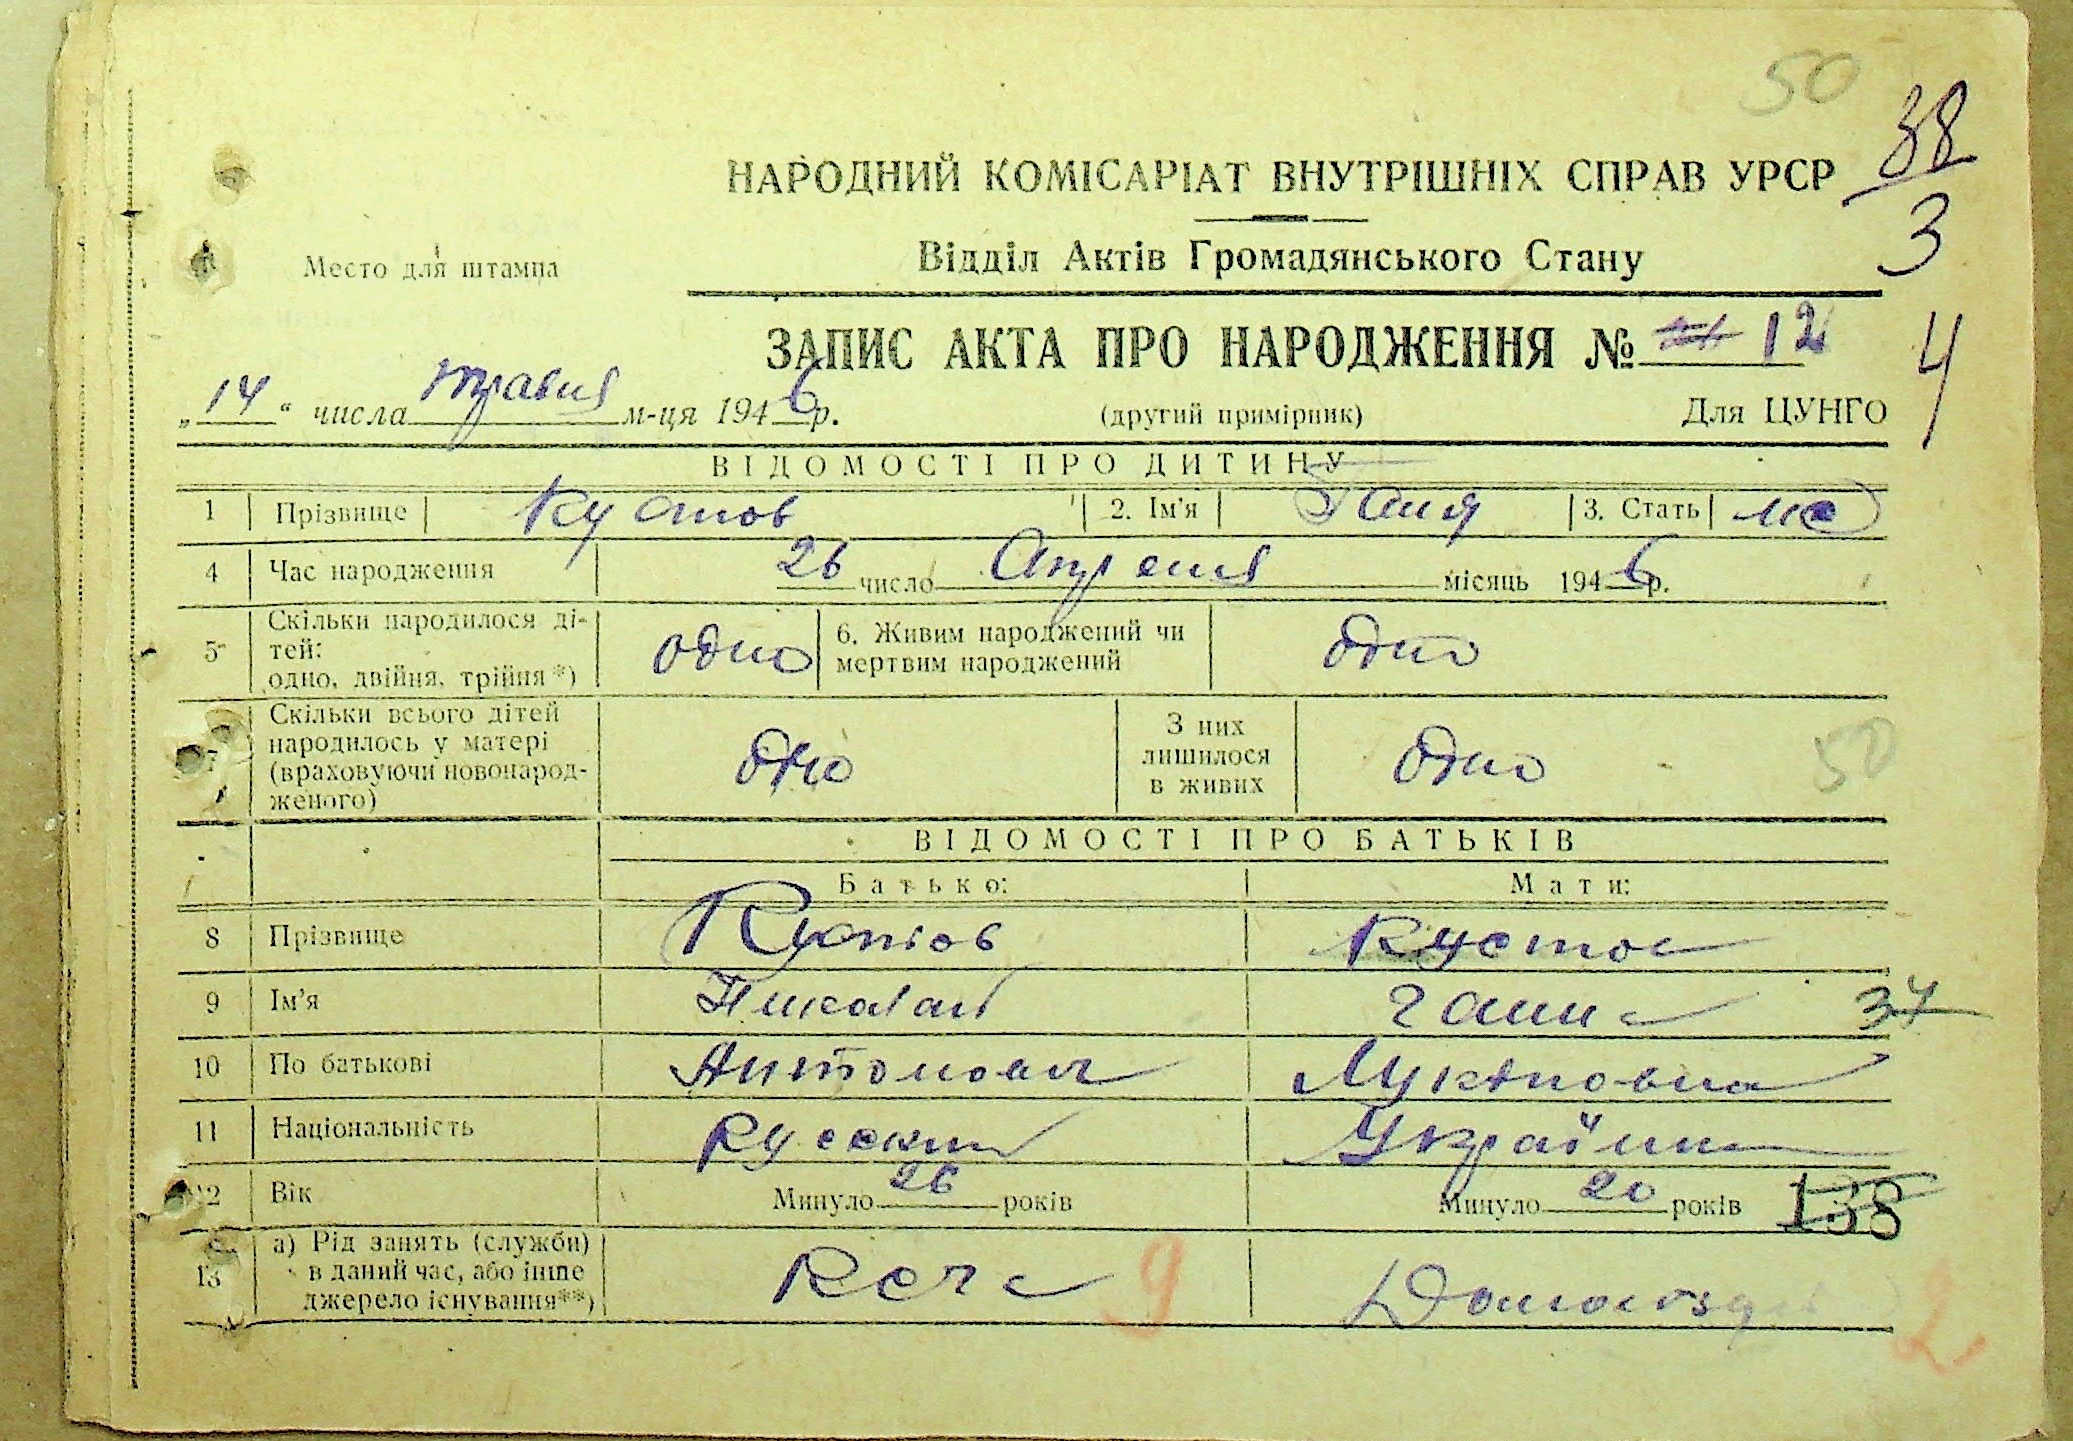 50
38
3
4
НАРОДНИЙ КОМІСАРІАТ ВНУТРІШНІХ СПРАВ УРСР
Место для штампа
Відділ Актів Громадянського Стану
ЗАПИС АКТА ПРО НАРОДЖЕННЯ № 12
„14“ числа травня м-ця 1946 р. (другий примірник) Для ЦУНГО
ВІДОМОСТІ ПРО ДИТИНУ
1 Прізвище Кустов 2. Ім'я Таня 3. Стать
4 Час народження 26 число Апреля місяць 1946 р.
5 Скільки народилося ді-
тей:
одно, двійня, трійня*) одно 6. Живим народжений чи
мертвим народжений одно
7 Скільки всього дітей
народилось у матері
(враховуючи новонарод-
женого) одно З них
лишилося
в живих одно
50
ВІДОМОСТІ ПРО БАТЬКІВ
Батько: Мати:
8 Прізвище Кустов Кустов
9 Ім'я Николай Ганна 34
10 По батькові Антонович Лукяновна
11 Національність Русский Українка
12 Вік Минуло 26 років Минуло 20 років 138
13 а) Рід занять (служби)
в даний час, або інше
джерело існування**) 9
2